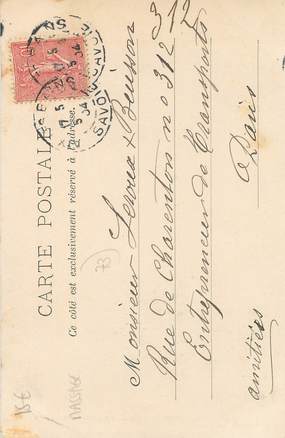 CARTE POSTALE
Ce côté est exclusivement réservé à l'adresse.
Monsieur Leroux & Buisson
Rue de Charenton no 312
Entrepreneur de Transports
Paris
amitiés
SAVOIE
73